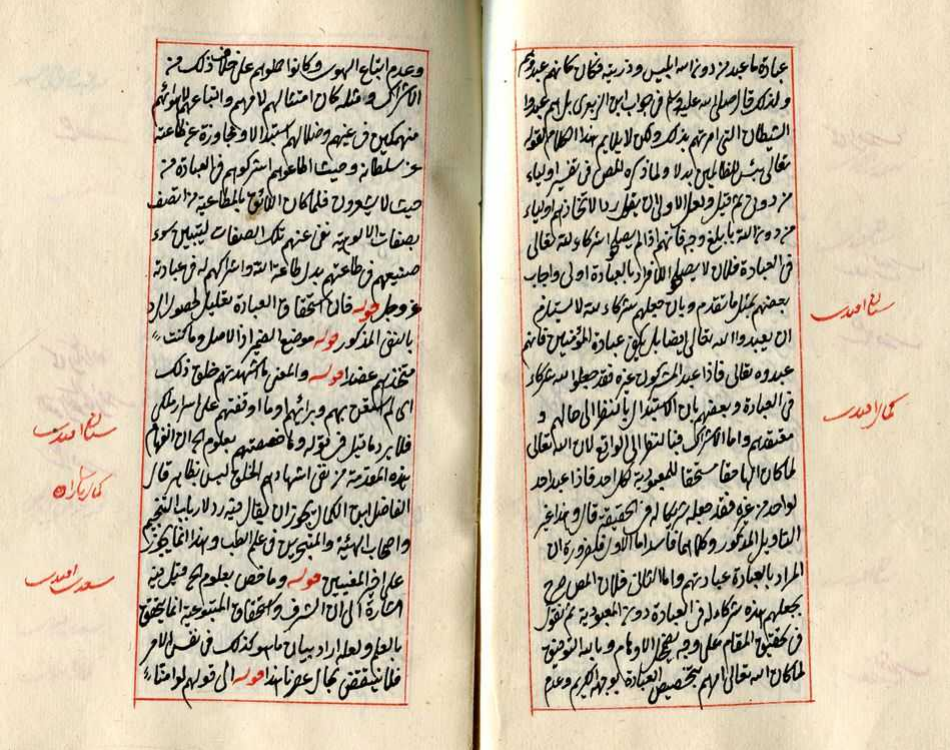 عبادة ما عبد من دون الله ابليس وذريته فكان كانهم عبدوهم
ولذلك قال صلى الله عليه وسلم في جواب ابن الزبعرى بل هم عبدوا
الشيطان التي امرتهم بذلك ولكن لا يلايم هذا الكلام لقوله
تعالى بئس للظالمين بدلا ولما ذكره المص في تفسير اولياء
من دوني ثم قيل ولعل الاولى ان يقول ردا لاتخاذهم اولياء
من دون الله بابلغ وجه فانهم اذا لم يصلحوا شركاء لله تعالى
في العبادة فلان لا يصلحوا للانفراد بالعبادة اولى واجاب
بعضهم بمثل ما تقدم وبان جعلهم شركاء لله لا يستلزم
ان يعبدوا الله تعالى ايضا بل يكفي عبادة المؤمنين فانهم
عبدوه تعالى فاذا عبد المشركون غيره فقد جعلوا لله شركاء
في العبادة وبعضهم بان الاستبدال بالنظر الى حالهم و
معتقدهم واما الاشراك فبالنظر الى الواقع لان الله تعالى
لما كان الها حقا مستحقا للمعبودية لكل احد فاذا عبد احد
لواحد من غيره فقد جعله شريكا له في الحقيقة قال وهذا غير
التاويل المذكور وكلاهما فاسد اما الاول فلضرورة ان
المراد بالعبادة عبادتهم واما الثاني فلان المص صرح
بجعلهم هذه شركاء له في العبادة دون المعبودية ثم نقول
في تحقيق المقام على وجه يضمحل الاوهام وبالله التوفيق
لما كان الله تعالى امرهم بتخصيص العبادة لوجهه الكريم وعدم
وعدم اتباع الهوى وكانوا ظلوهم على خلاف ذلك من
الاشراك ومثله كان امتثالهم لامرهم واتباعهم لاهوائهم
منهمكين في غيهم وضلالهم استبدالا ومجاوزة عن طاعته
عز سلطانه وحيث اطاعوهم اشركوهم في العبادة من
حيث لا يشعرون فلما كان اللائق بالمطاعية من اتصف
بصفات الالوهية نفى عنهم تلك الصفات ليتبين سوء
صنيعهم في طاعتهم بدل طاعة الله واشراكهم له في عبادته
عز وجل قوله فان استحقاق العبادة تعليل لحصول الرد
بالنفي المذكور قوله موضع الضمير اذ الاصل وما كنت
متخذهم عضدا قوله والمعنى ما اشهدتهم خلق ذلك
اي لم استعن بهم وبرائهم وما اوقفتهم على اسرار ملكي
فلا يرد ما قيل في قوله وما خصصتهم بعلوم الخ ان انفهام
هذه المقدمة من نفي اشهادهم الخلق ليس بظاهر قال
الفاضل ابن الكمال يجوز ان يقال فيه رد لارباب التنجيم
واصحاب الهيئة والمتبحرين في علم الطب وهذا انما يجوز
على اخر المعنيين قوله وما خص بعلوم الخ قيل فيه
اشارة الى ان الشرف واستحقاق المتبوعية انما يتحقق
بالعلم ولعله اراد بيان ما هو كذلك في نفس الامر
فلا ينتقض بحال عصرنا هذا قوله الى قولهم لو امتناء
سنان افندى
كمال افندى
سنان افندى
سعدى افندى